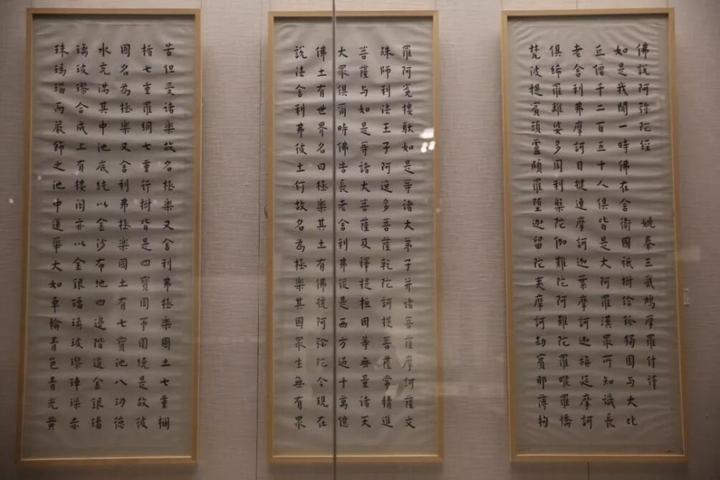 佛說阿弥陀经 姚秦三藏鸠摩羅什譯
如是我聞一時佛在舍衛國祇樹给孤獨園与大比
丘僧千二百五十人俱皆是大阿羅漢眾所知識長
老舍利弗摩訶目揵連摩訶迦葉摩訶迦旃延摩訶
俱絺羅離婆多周利槃陀伽難陀阿難陀羅睺羅憍
梵波提賓頭盧頗羅墮迦留陀夷摩訶劫賓那薄拘
羅阿㝹樓馱如是等諸大弟子并諸菩薩摩訶薩文
殊師利法王子阿逸多菩薩乾陀訶提菩薩常精進
菩薩与如是等諸大菩薩及釋提桓因等無量諸天
大眾俱爾時佛告長老舍利弗從是西方過十萬億
佛土有世界名曰極樂其土有佛號阿弥陀今現在
說法舍利弗彼土何故名為極樂其國眾生無有眾
苦但受諸樂故名極樂又舍利弗極樂國土七重欄
楯七重羅網七重行樹皆是四寶周帀圍繞是故彼
國名為極樂又舍利弗極樂國土有七寶池八功德
水充滿其中池底純以金沙布地四邊階道金銀瑠
璃玻瓈合成上有樓閣亦以金銀瑠璃玻瓈硨磲赤
珠瑪瑙而嚴飾之池中蓮華大如車輪青色青光黄